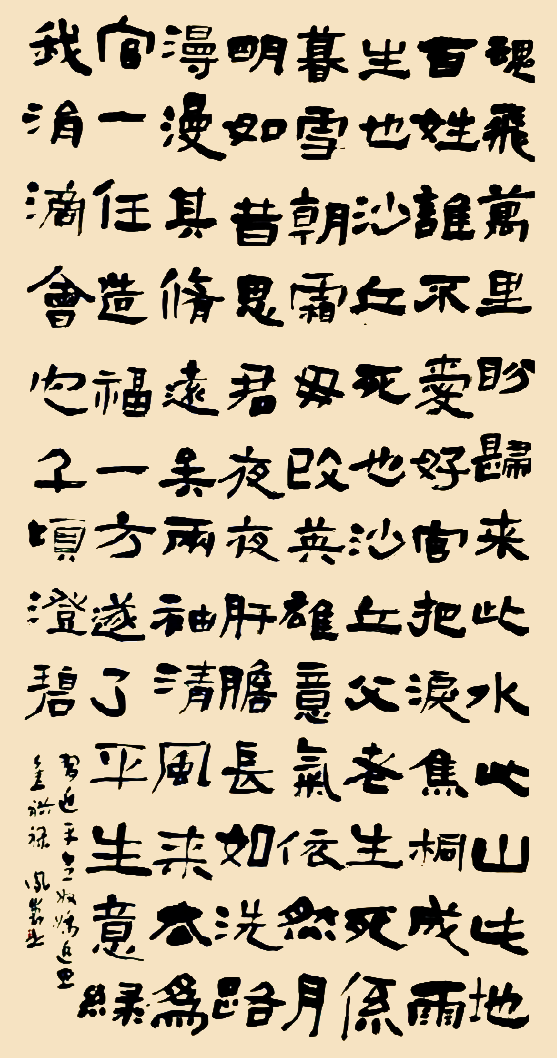 魂飛萬里盼歸来此水此山此地
百姓誰不愛好官把淚焦桐成雨
生也沙丘死也沙丘父老生死係
暮雪朝霜毋改英雄意氣依然月
明如昔思君夜夜肝膽長如洗路
漫漫其脩遠矣兩袖清風来去為
官一任造福一方遂了平生意綠
我涓滴會它千頃澄碧
習近平念奴嬌追思
焦裕祿